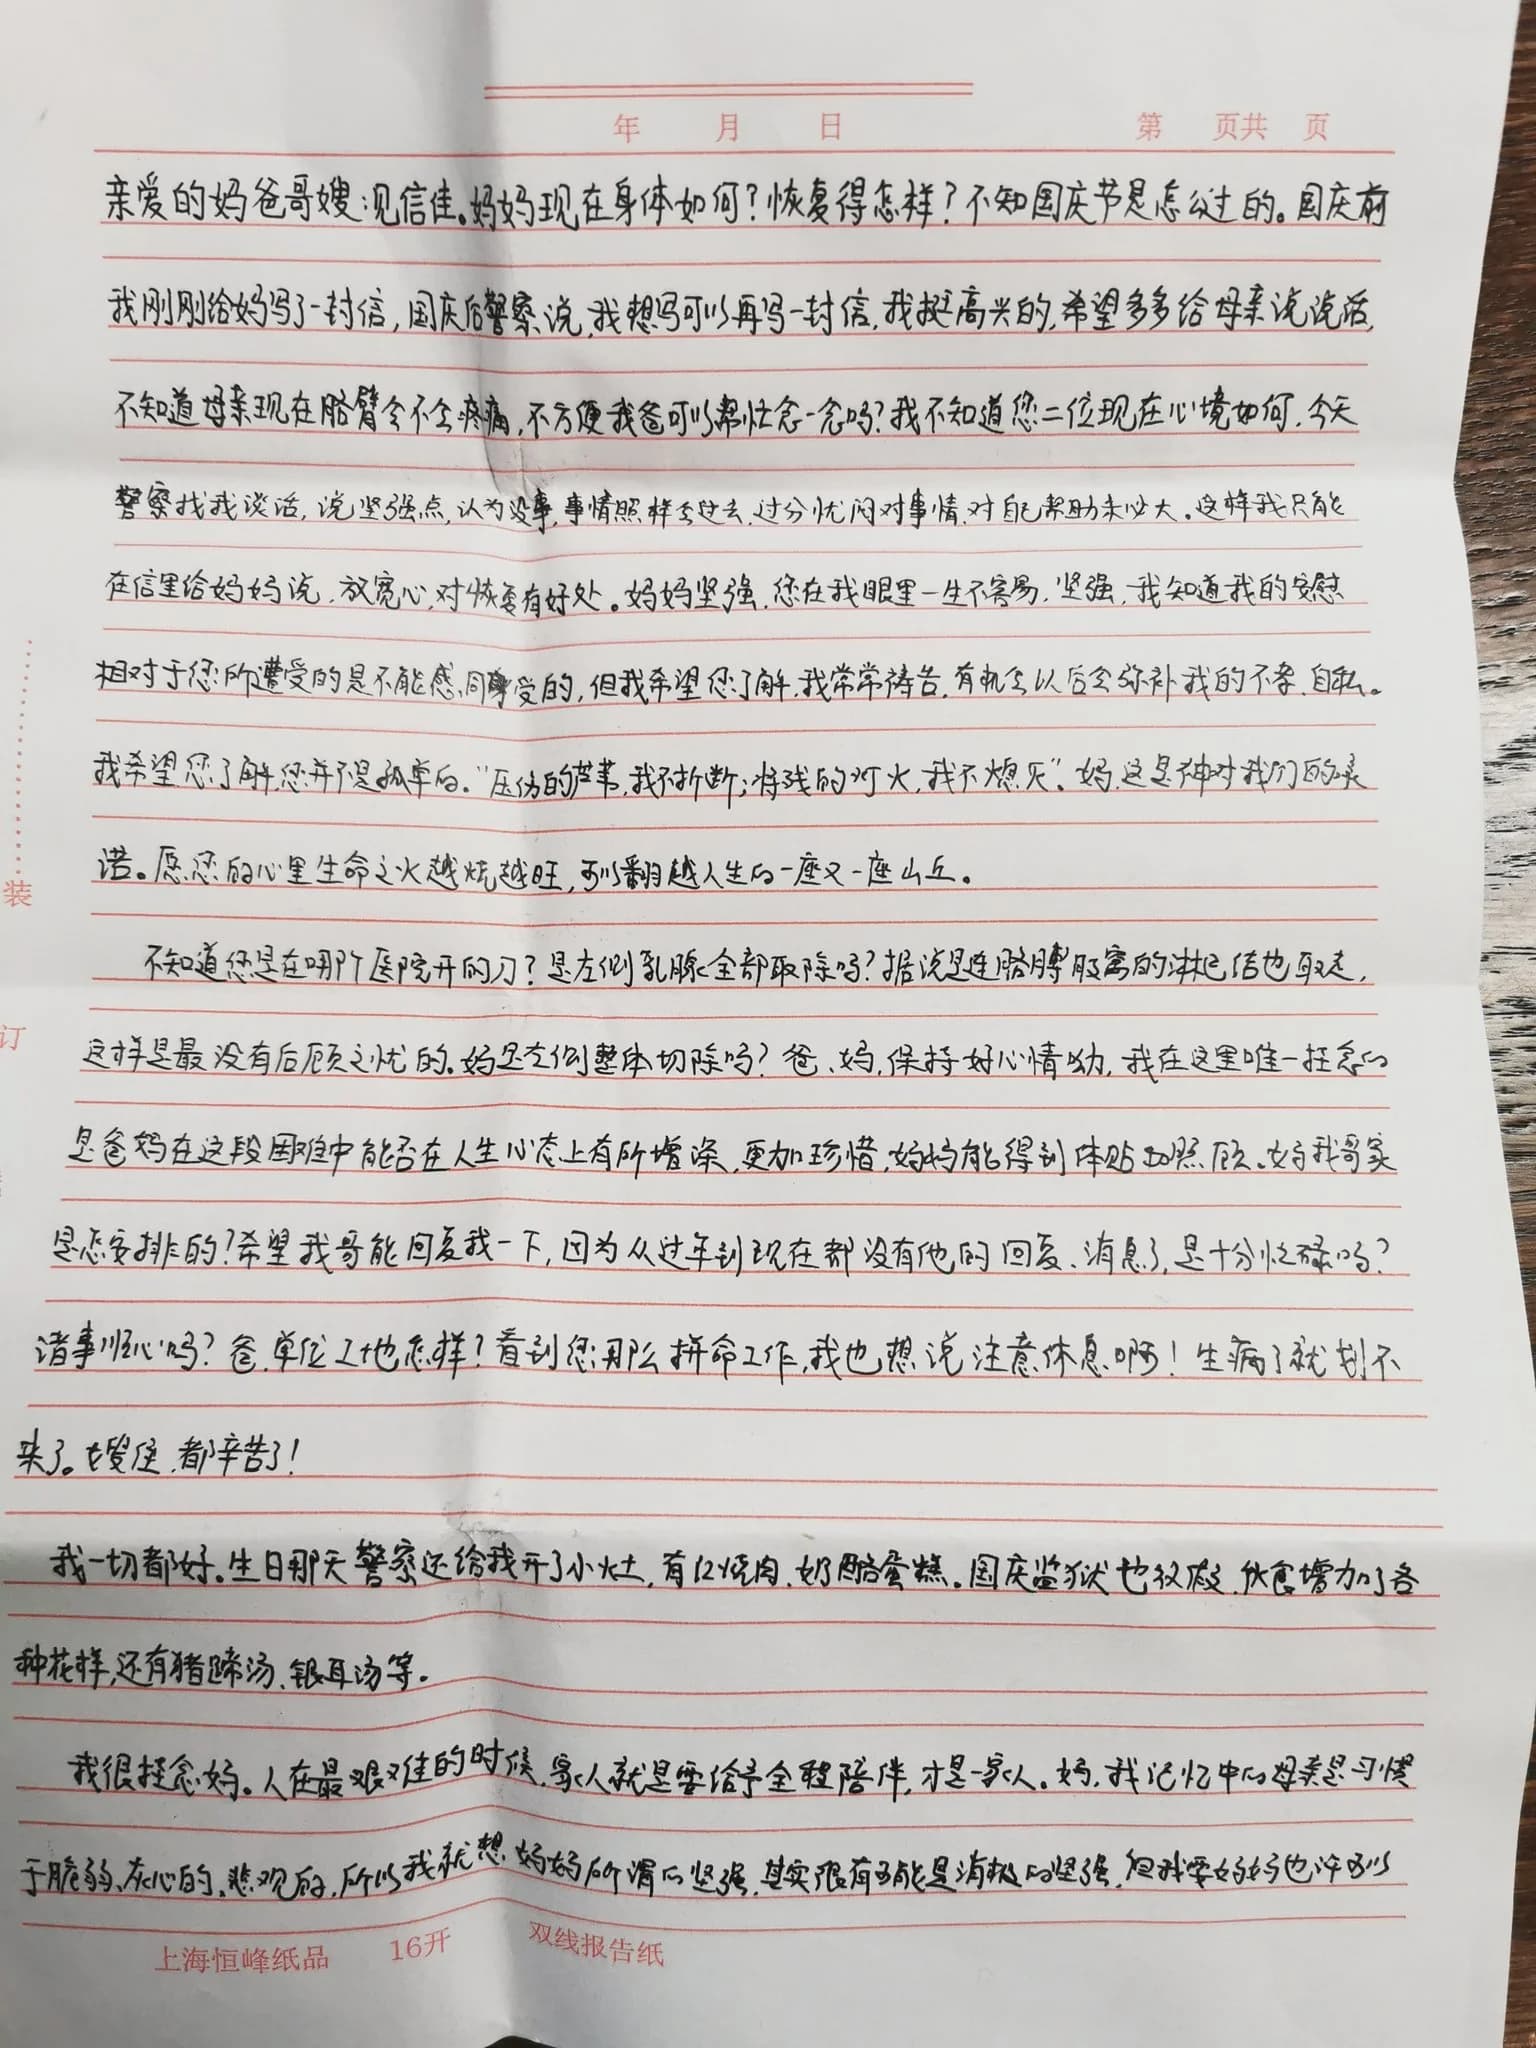 年 月 日 第 页共 页
亲爱的妈爸哥嫂:见信佳。妈妈现在身体如何?恢复得怎样?不知国庆节是怎么过的。国庆前
我刚刚给妈写了一封信,国庆后警察说,我想写可以再写一封信,我挺高兴的,希望多多给母亲说说话,
不知道母亲现在胳臂会不会疼痛,不方便我爸可以帮忙念一念吗?我不知道您二位现在心境如何,今天
警察找我谈话,说坚强点,认为没事,事情照样会过去,过分忧闷对事情、对自己帮助未必大。这样我只能
在信里给妈妈说,放宽心,对恢复有好处。妈妈坚强,您在我眼里一生不容易,坚强,我知道我的安慰
相对于您所遭受的是不能感同身受的,但我希望您了解,我常常祷告,有机会以后会弥补我的不孝、自私。
我希望您了解,您并不是孤单的。“压伤的芦苇,我不折断;将残的灯火,我不熄灭”。妈,这是神对我们的承
诺。愿您的心里生命之火越烧越旺,可以翻越人生的一座又一座山丘。
不知道您是在哪个医院开的刀?是左侧乳腺全部取除吗?据说是连胳膊肢窝的淋巴结也取走,
这样是最没有后顾之忧的。妈是左侧整体切除吗?爸、妈,保持好心情呦,我在这里唯一挂念的
是爸妈在这段困难中能否在人生心态上有所增深,更加珍惜,妈妈能得到体贴的照顾。妈我哥家
是怎安排的?希望我哥能回复我一下,因为从过年到现在都没有他的回复、消息了,是十分忙碌吗?
诸事顺心吗?爸,单位工地怎样?看到您那么拼命工作,我也想说注意休息啊!生病了就划不
来了。嫂侄,都辛苦了!
我一切都好。生日那天警察还给我开了小灶,有红烧肉、奶酪蛋糕。国庆监狱也放假,伙食增加了各
种花样,还有猪蹄汤、银耳汤等。
我很挂念妈。人在最艰难的时候,家人就是要给予全程陪伴,才是一家人。妈,我记忆中的母亲是习惯
于脆弱、灰心的、悲观的,所以我就想妈妈所谓的坚强,其实很有可能是消极的坚强,但我要妈妈也许可以
装
订
上海恒峰纸品 16开 双线报告纸